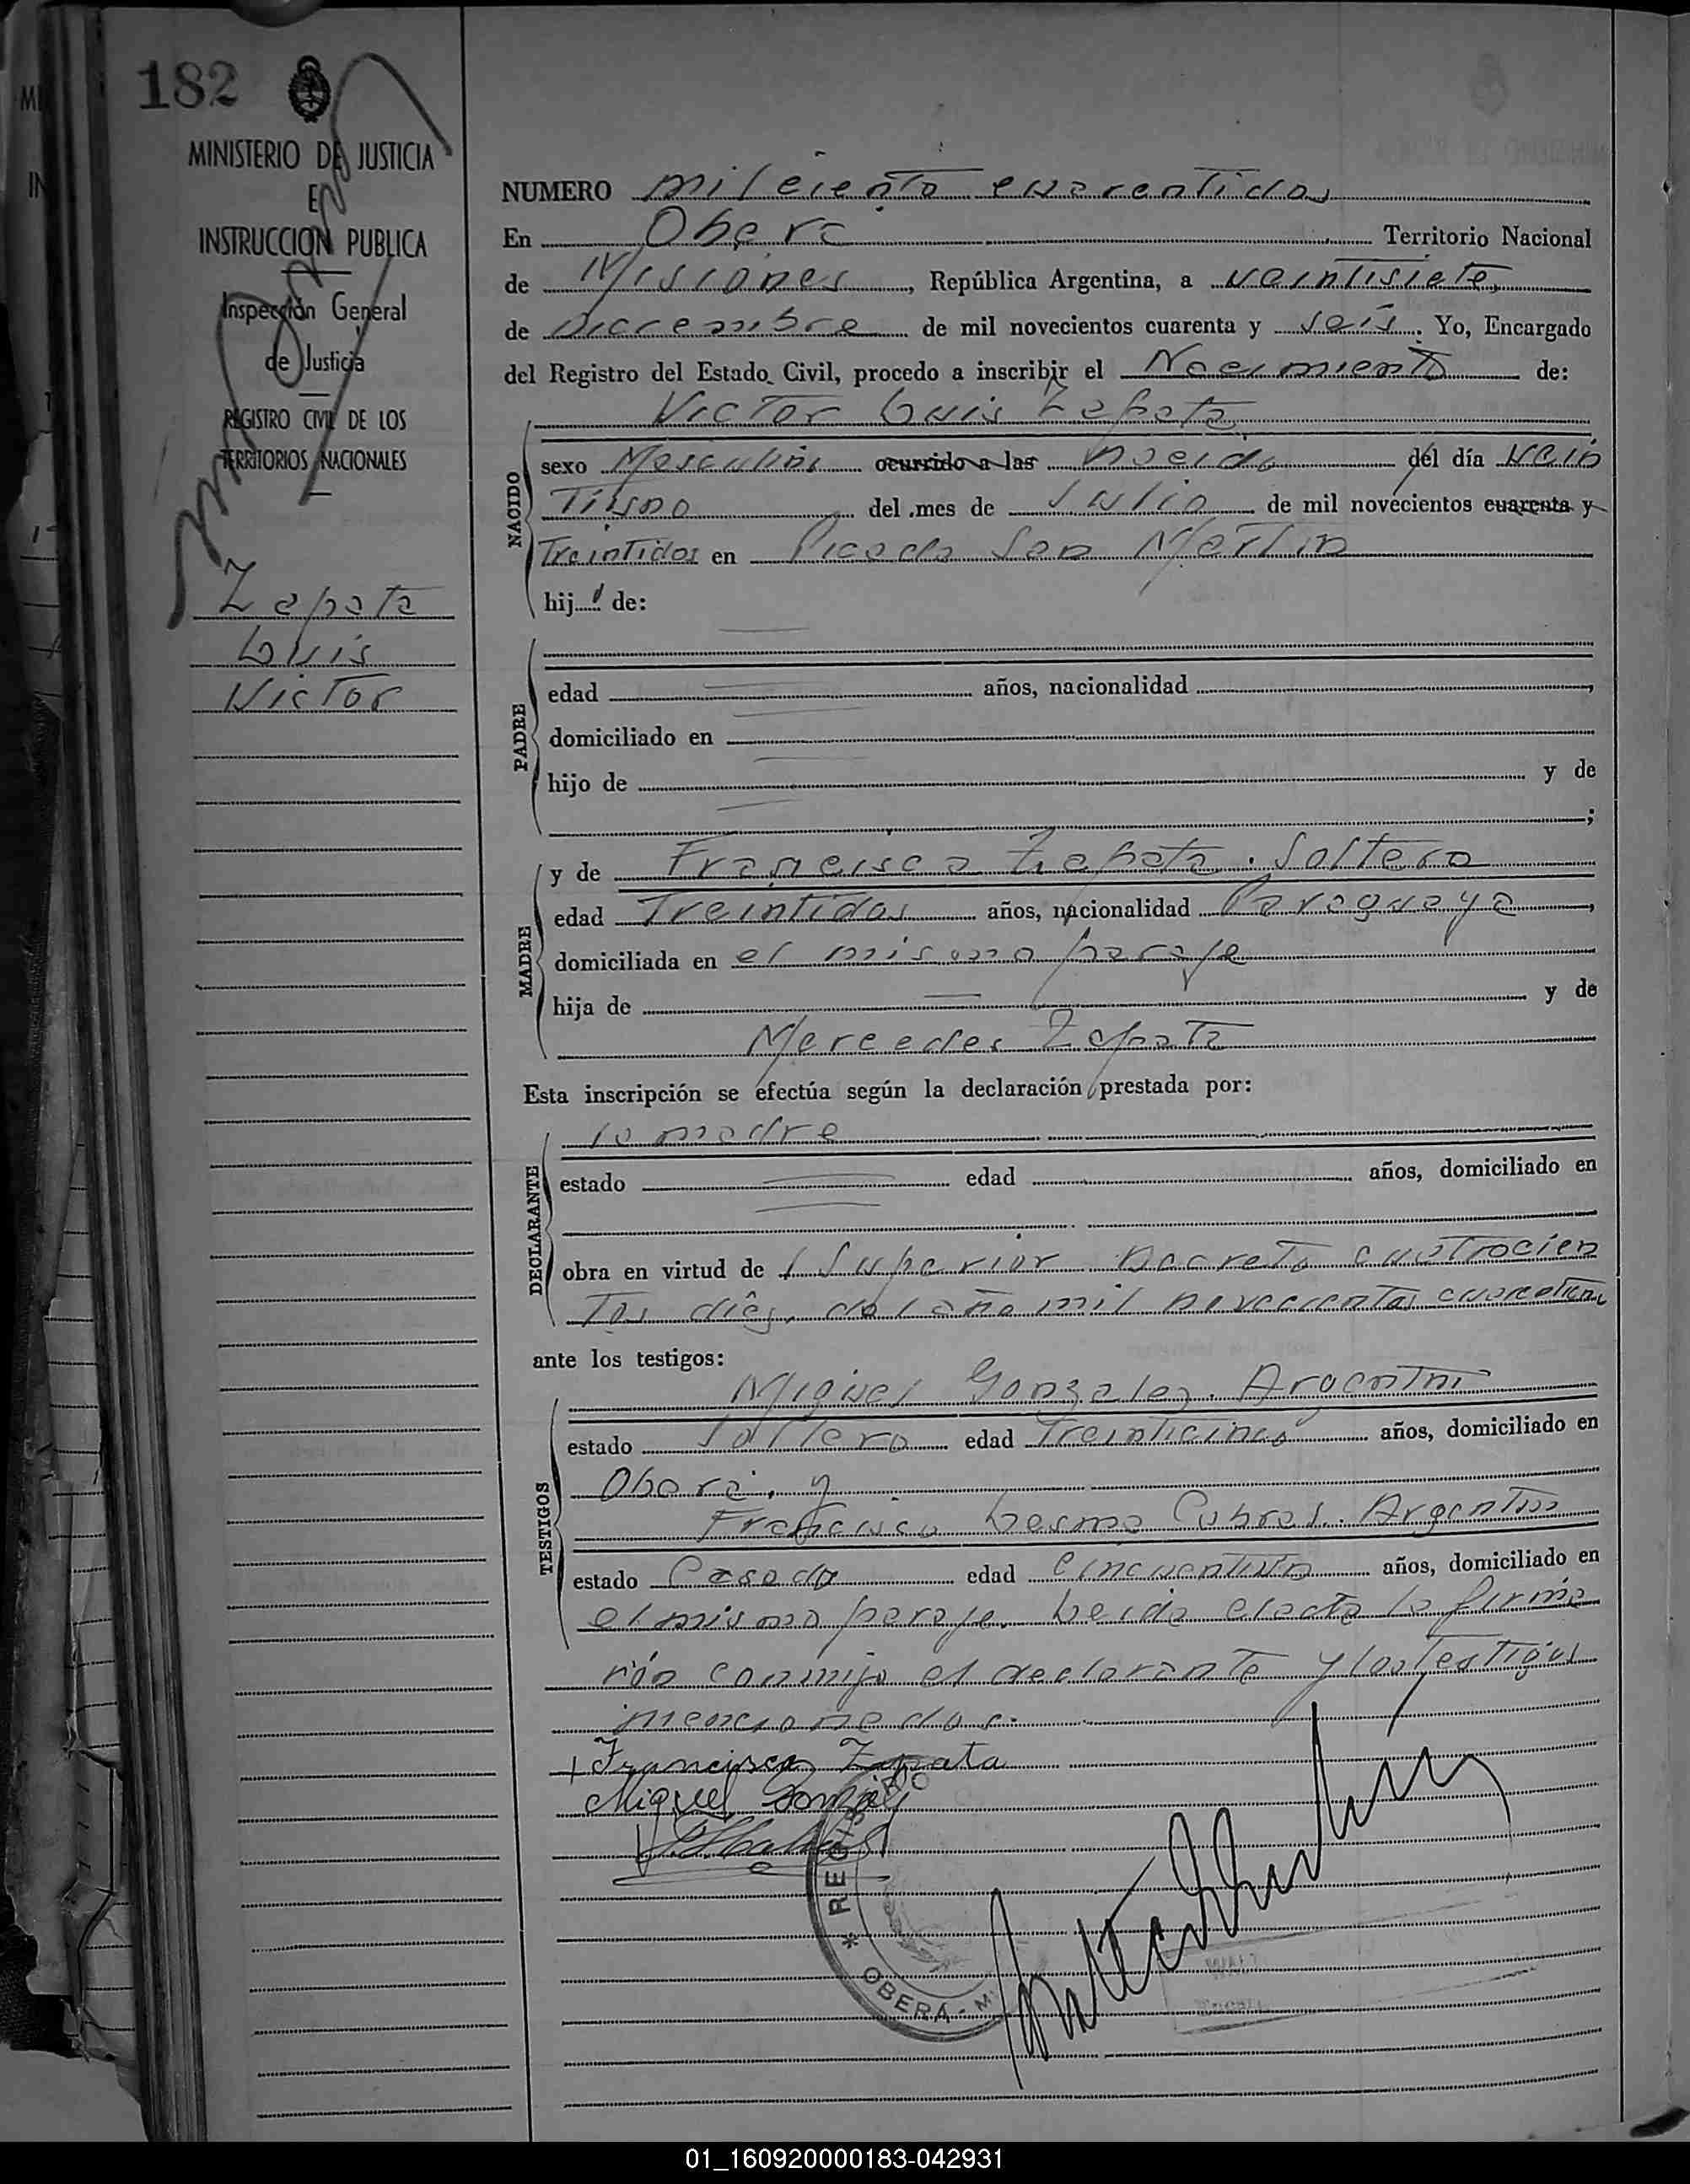 182
MINISTERIO DE JUSTICIA
E
INSTRUCCION PUBLICA
Inspección General
de Justicia
REGISTRO CIVIL DE LOS
TERRITORIOS NACIONALES
Zapata
Luis
Victor
NUMERO mil ciento cuarentidos
En Obera Territorio Nacional
de Misiones, República Argentina, a veintisiete
de Diciembre de mil novecientos cuarenta y seis. Yo, Encargado
del Registro del Estado Civil, procedo a inscribir el Nacimiento de:
Victor Luis Zapata
NACIDO
sexo Masculino ocurrido a las nacido del día vein
tiuno del mes de Julio de mil novecientos cuarenta y
treintidos en Picada San Martin
hijo de:
PADRE
edad años, nacionalidad ,
domiciliado en
hijo de y de
;
MADRE
y de Francisca Zapata. Soltera
edad Treintidos años, nacionalidad Paraguaya,
domiciliada en el mismo paraje
hija de — y de
Mercedes Zapata
Esta inscripción se efectúa según la declaración prestada por:
DECLARANTE
la madre
estado edad años, domiciliado en
obra en virtud de l Superior Decreto cuatrocien
tos diez, del año mil novecientos
ante los testigos:
TESTIGOS
Miguel Gonzalez. Argentino
estado Soltero edad Treinticinco años, domiciliado en
Obera, y
Francisco Lesmo Cabral. Argentino
estado Casado edad Cincuentiun años, domiciliado en
el mismo paraje. Leida el acta la firma
rón conmigo el declarante y los testigos
mencionados.
+ Francisca Zapata
Miguel Gonzalez
* REGISTRO
OBERA - M
01_160920000183-042931